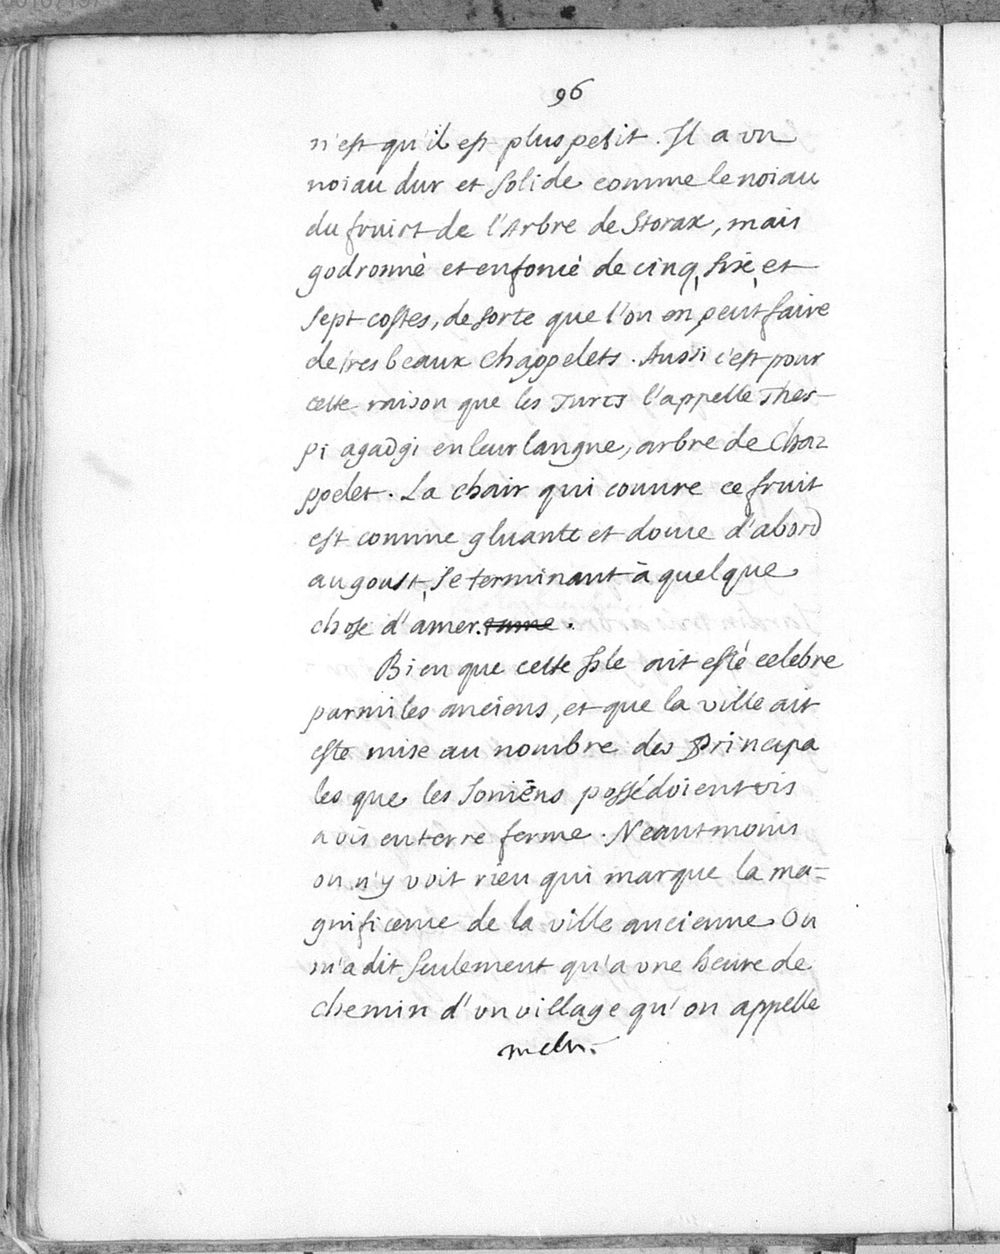 96
n'est qu'il est plus petit. Il a vn
noiau dur et solide comme le noiau
du fruict de l'Arbre de Storax, mais
godronné et enfoncé de cinq, six, et
sept costes, de sorte que l'on en peut faire
de tres beaux chappelets. Aussi c'est pour
cette raison que les Turcs l'appelle Thes-
pi agadgi en leur langue, arbre de Chaz
ppelet. La chair qui couure ce fruit
est comme gluante et douce d'abord
au goust, se terminant à quelque
chose d'amer. tume.
Bien que cette Isle ait esté celebre
parmi les anciens, et que la ville ait
esté mise au nombre des Principa
les que les Ioniens possédoient vis
a vis en terre ferme. Neantmoins
on n'y voit rien qui marque la ma=
gnificence de la ville ancienne On
m'a dit seulement qu'a vne heure de
chemin d'vn village qu'on appelle